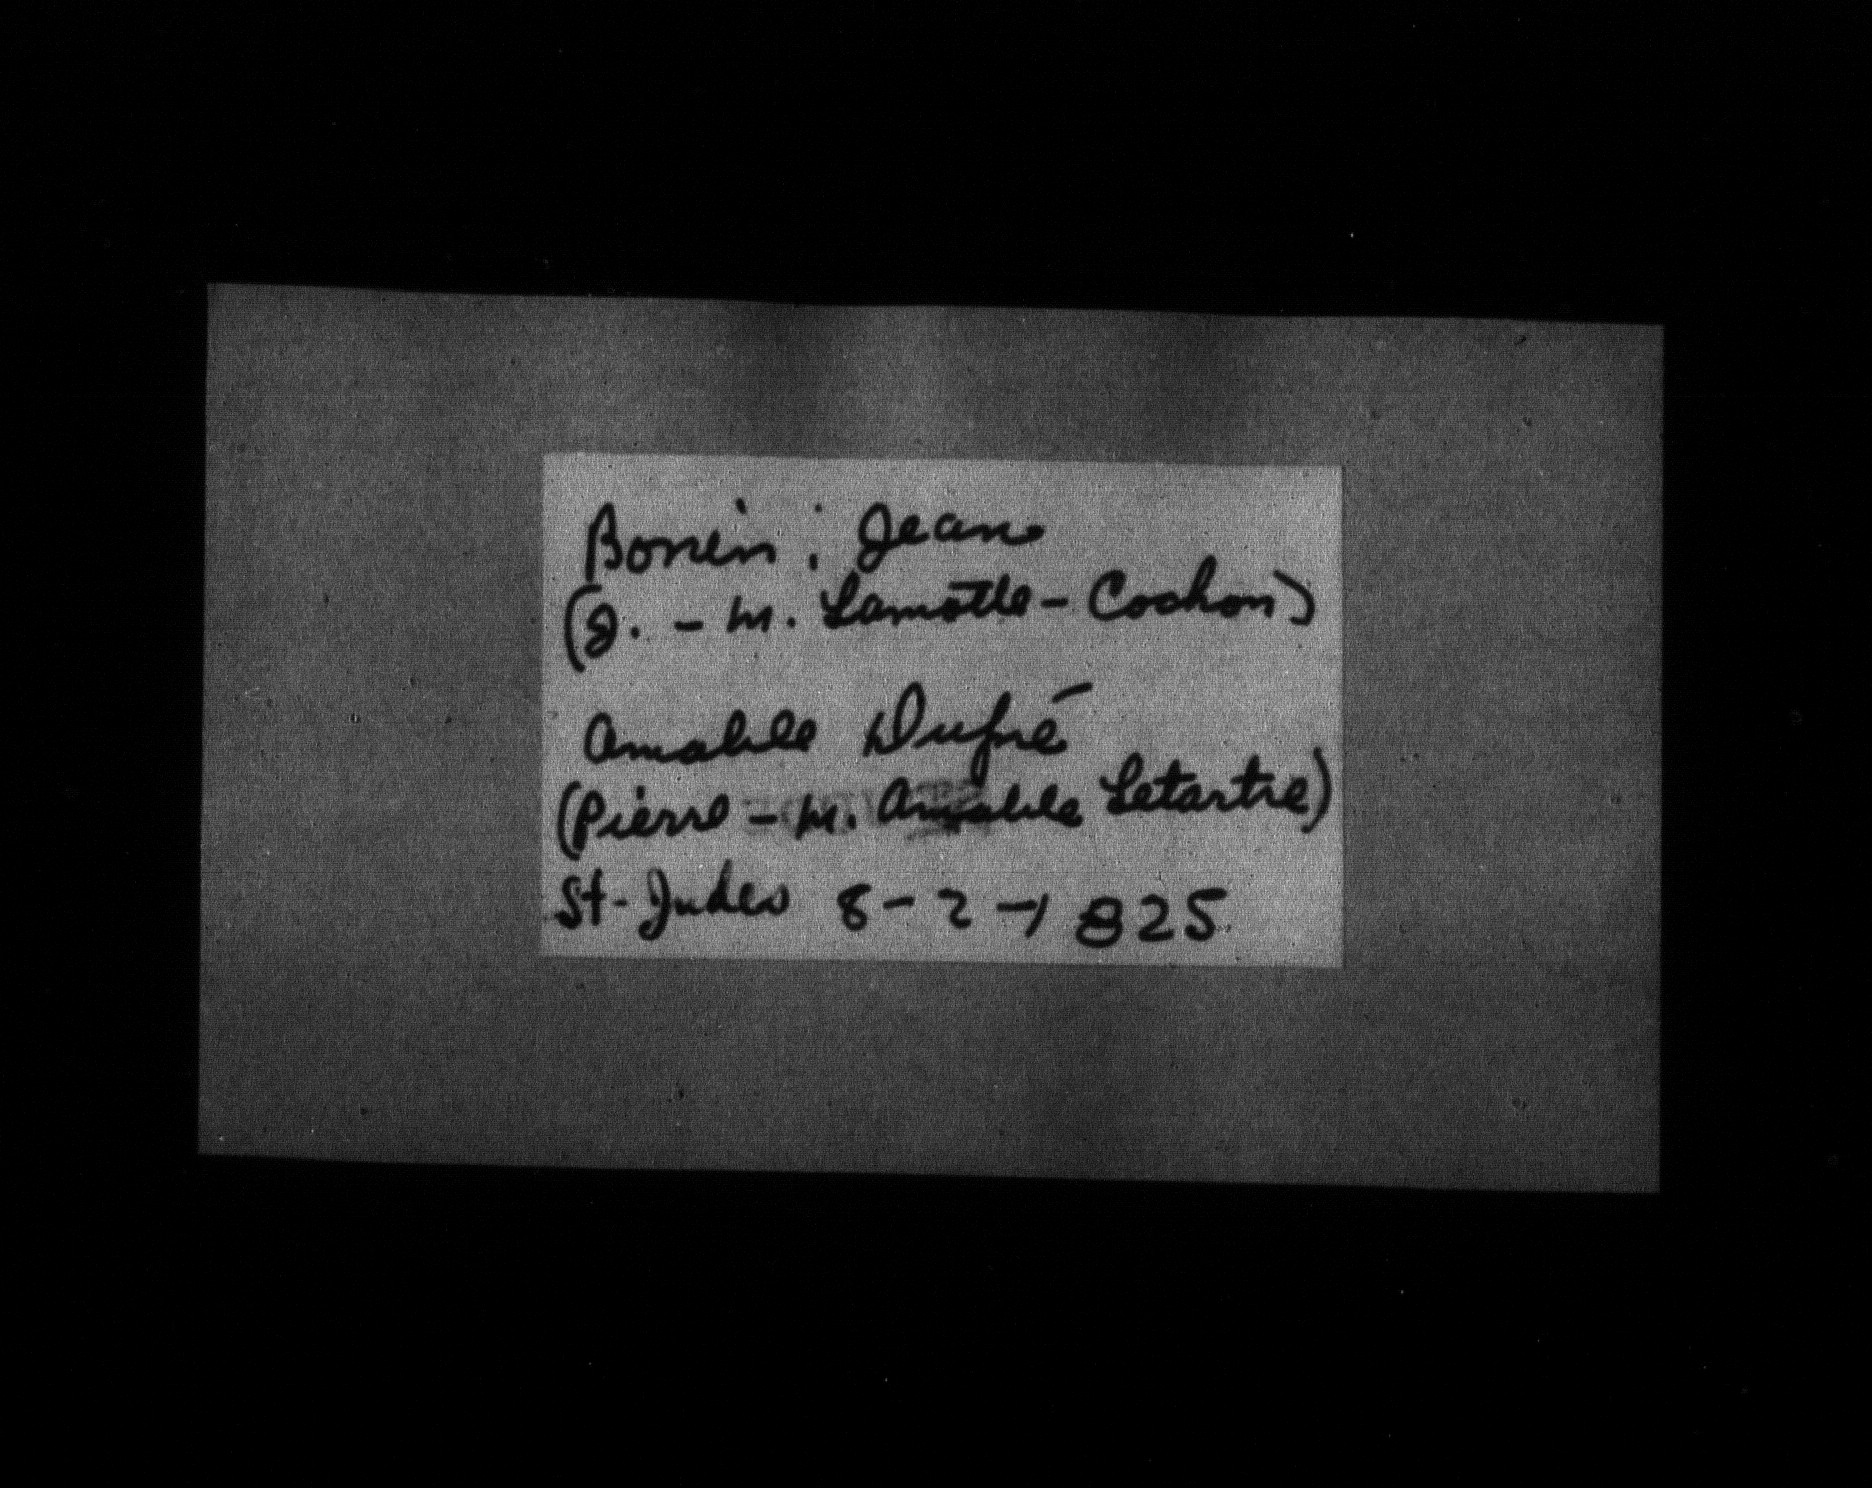 Bonin ; Jean
(J. - M. Lamothe - Cochon)
Amable Dufré
(Pierre - M. Amable Letartre)
St-Judes 8-2-1825